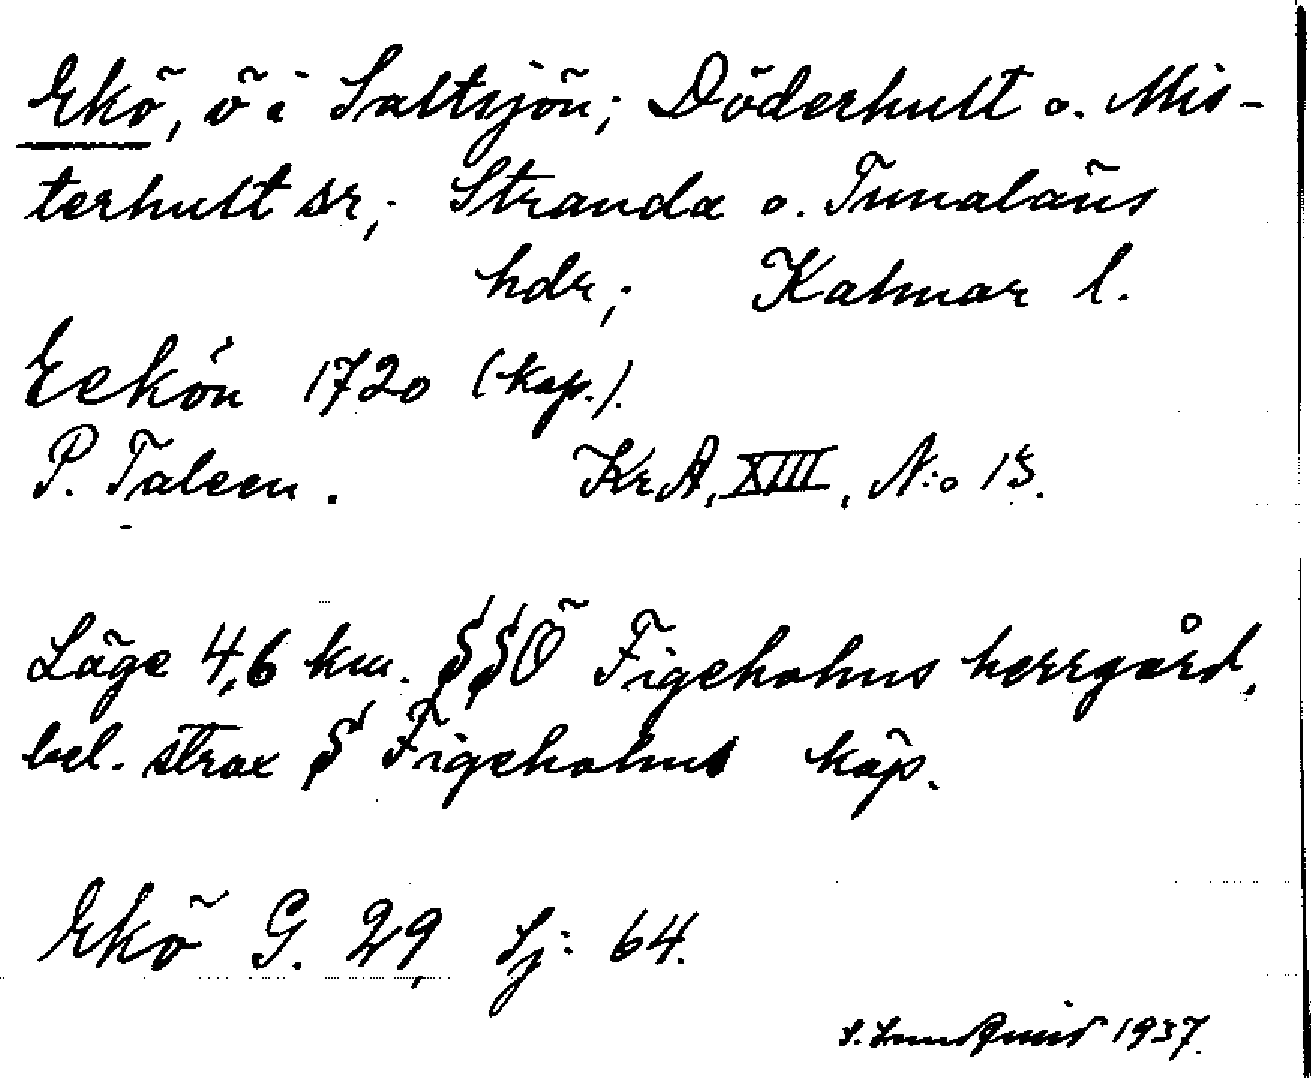 Ekö, ö i Saltsjön; Döderhult o. Mis-
terhult sr; Stranda o. Tunaläns
hdr; Kalmar l.
Eckön 1720 (kop.).
P. Taleen. KrA, XIII, N:o 13.
Läge 4,6 km. SSÖ Figeholms herrgård,
bel. strax S Figeholms köp.
Ekö G. 29, Sj: 64.
S. Lundquist 1937.